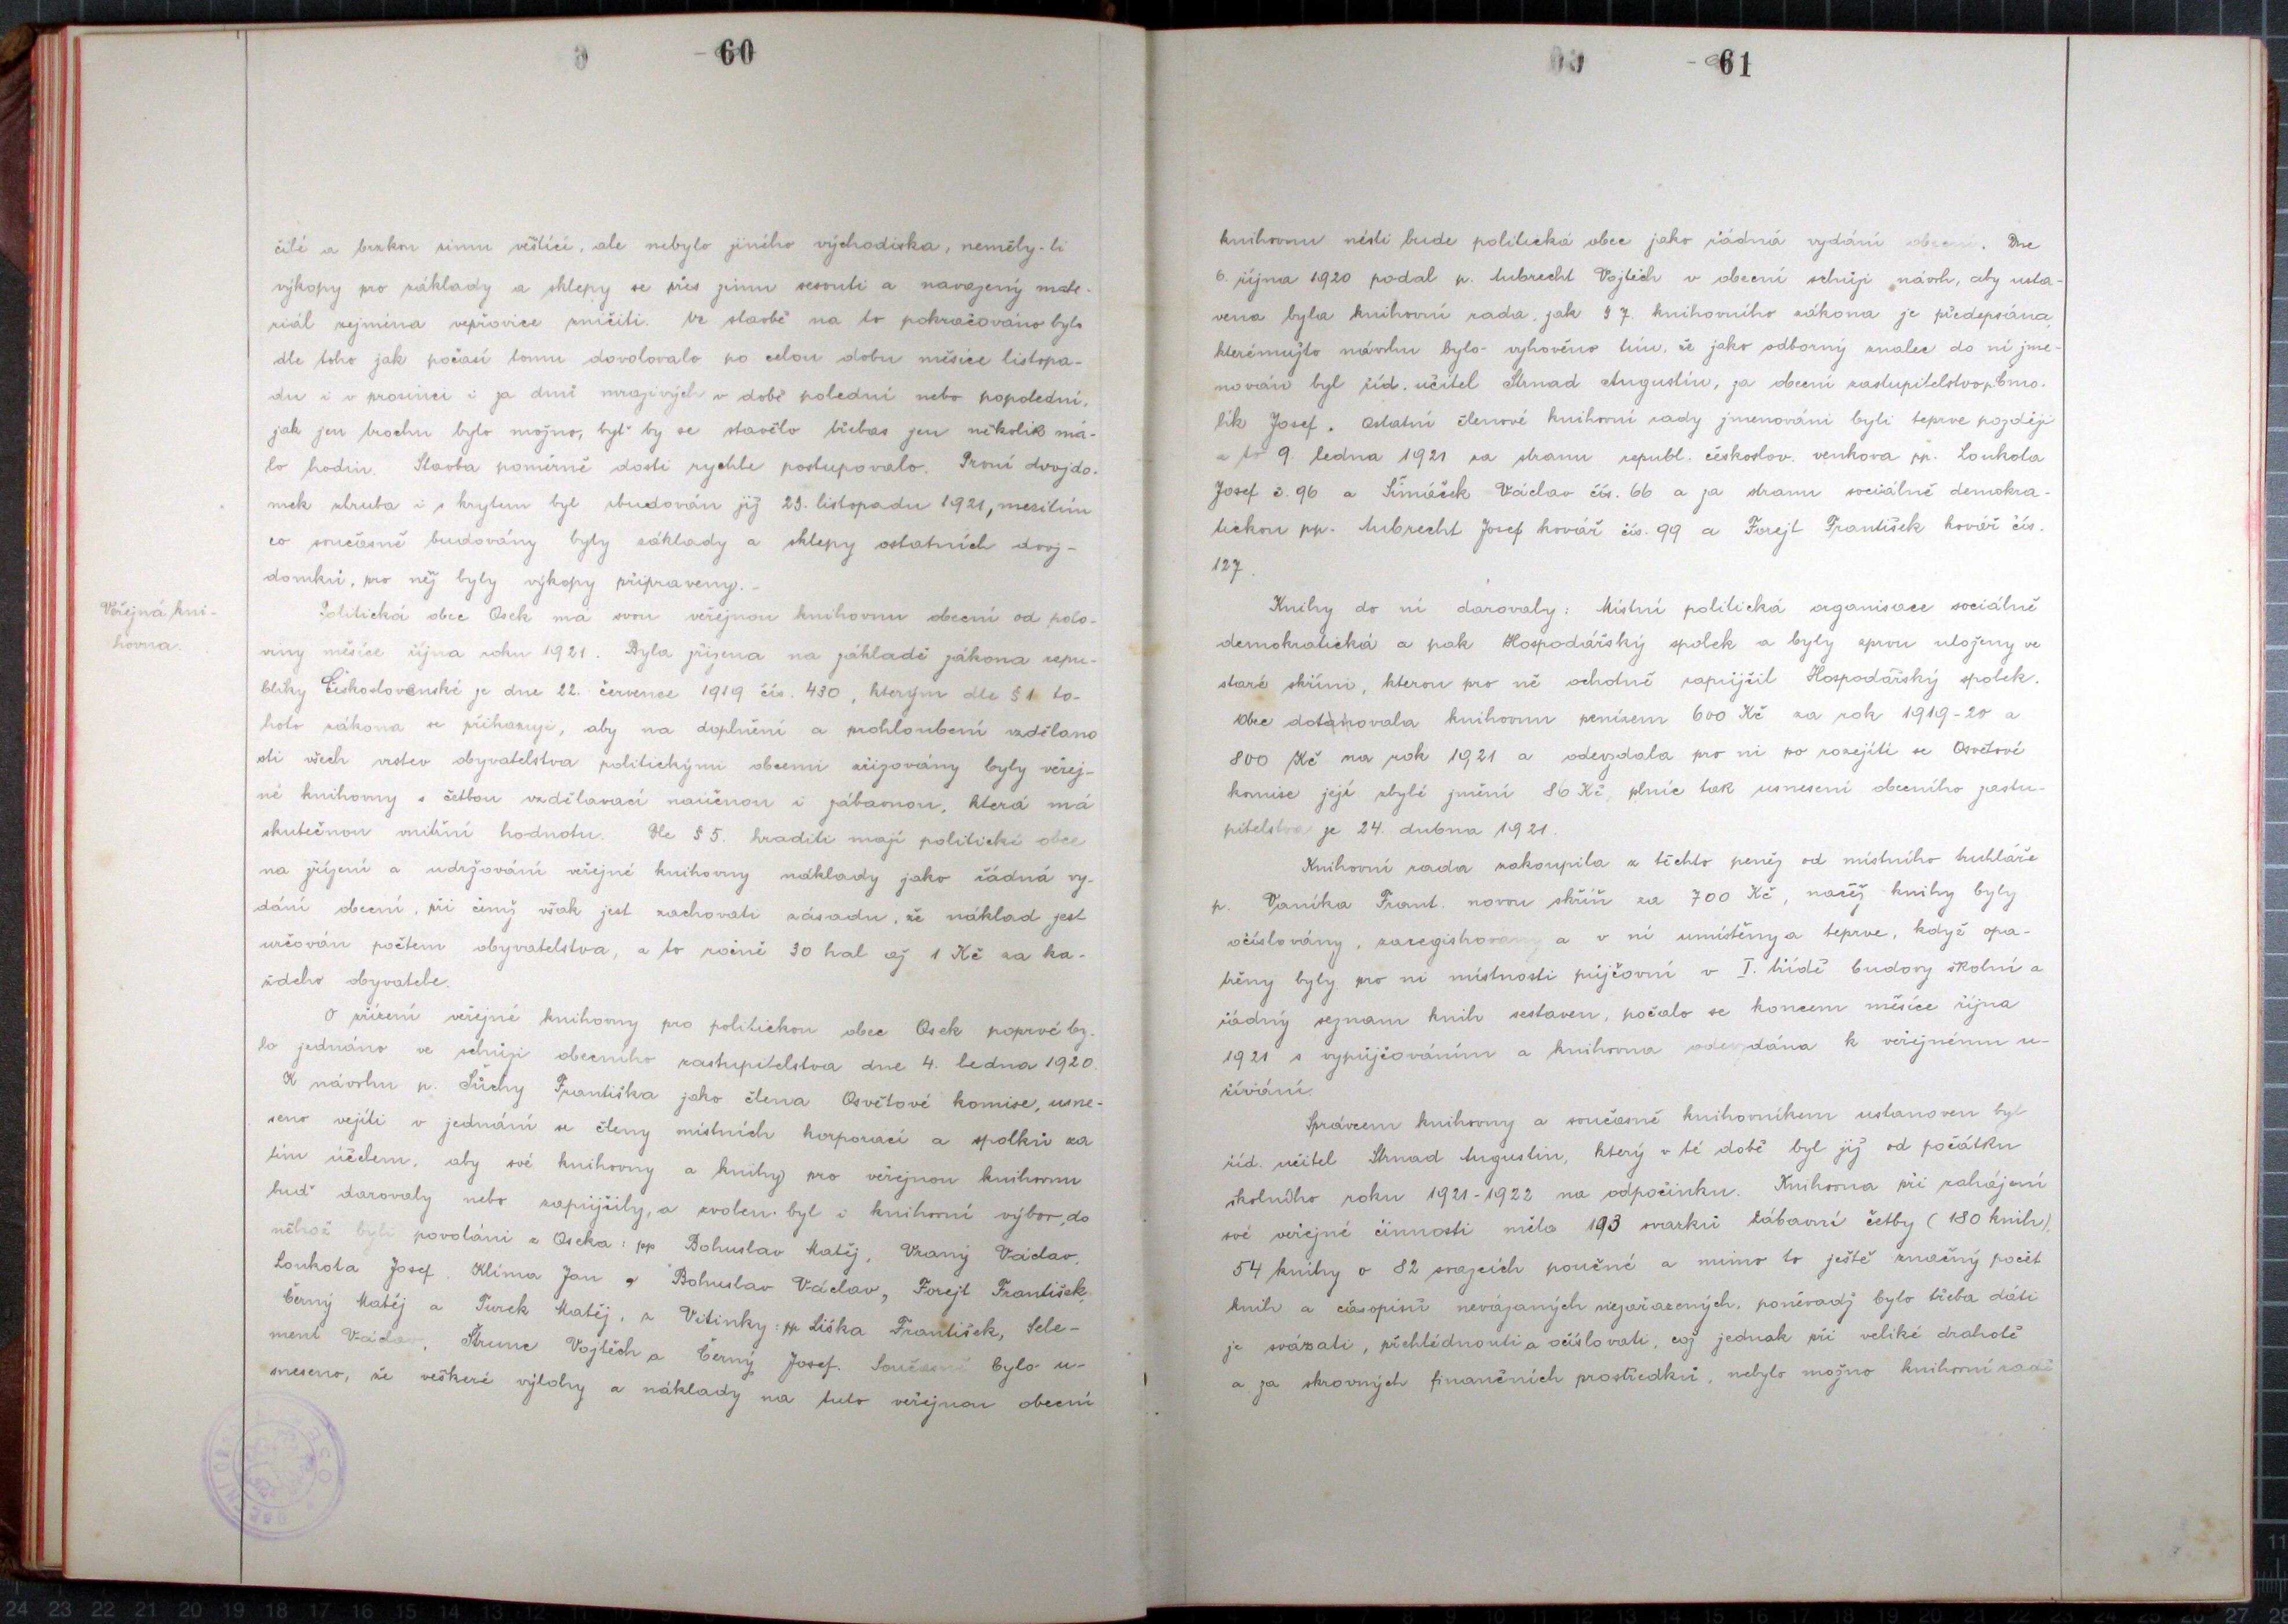 60
čilé a brzkou zimu věštící, ale nebylo jiného východiska, neměly-li
výkopy pro základy a sklepy se přes zimu sesouti a navažený mate-
riál zejména vepřovice zničiti. Ve stavbě na to pokračováno bylo
dle toho jak počasí tomu dovolovalo po celou dobu měsíce listopa-
du i v prosinci i za dnů mrazivých v době polední nebo popolední,
jak jen trochu bylo možno, byť by se stavělo třebas jen několik má-
lo hodin. Stavba poměrně dosti rychle postupovalo. První dvojdo-
mek zhruba i s krytem byl zbudován již 23. listopadu 1921, mezitím
co současně budovány byly základy a sklepy ostatních dvoj-
domků, pro něj byly výkopy připraveny.-
Veřejná kni-
hovna.
Politická obec Osek má svou veřejnou knihovnu obecní od polo-
viny měsíce října roku 1921. Byla zřízena na základě zákona repu-
bliky Československé ze dne 22. července 1919 čís. 430, kterým dle § 1 to-
hoto zákona se přikazuje, aby na doplnění a prohloubení vzdělano
sti všech vrstev obyvatelstva politickými obcemi zřizovány byly veřej-
né knihovny s četbou vzdělavací naučnou i zábavnou, která má
skutečnou vnitřní hodnotu. Dle § 5. hraditi mají politické obce
na zřízení a udržování veřejné knihovny náklady jako řádná vy-
dání obecní, při čemž však jest zachovati zásadu, že náklad jest
určován počtem obyvatelstva, a to ročně 30 hal až 1 Kč za ka-
ždeho obyvatele.
O zřízení veřejné knihovny pro politickou obec Osek poprvé by-
lo jednáno ve schůzi obecního zastupitelstva dne 4. ledna 1920.
K návrhu p. Šůchy Františka jako člena Osvětové komise, usne-
seno vejíti v jednání se členy místních korporací a spolků za
tím účelem, aby své knihovny a knihy pro veřejnou knihovnu
buď darovaly nebo zapůjčily, a zvolen byl i knihovní výbor, do
něhož byli povoláni z Oseka: pp Bohuslav Matěj, Vraný Václav,
Loukota Josef. Klíma Jan, Bohuslav Václav, Forejt František,
Černý Matěj a Turek Matěj, z Vitinky: pp Liška František, Sele-
ment Václav, Štrunc Vojtěch a Černý Josef. Současně bylo u-
sneseno, že veškeré výlohy a náklady na tuto veřejnou obecní
61
knihovnu nésti bude politická obec jako řádná vydání obecní. Dne
6. října 1920 podal p. Aubrecht Vojtěch v obecní schůzi návrh, aby usta-
vena byla knihovní rada, jak § 7. knihovního zákona je předepsána,
kterémužto návrhu bylo vyhověno tím, že jako odborný znalec do ní jme-
nován byl říd. učitel Strnad Augustin, za obecní zastupitelstvo p. Smo-
lík Josef. Ostatní členové knihovní rady jmenováni byli teprve později
a to 9. ledna 1921 za stranu republ. českoslov. venkova pp. Loukota
Josef č. 96 a Šimáček Václav čís. 66 a za stranu sociálně demokra-
tickou pp. Aubrecht Josef kovář čís. 99 a Forejt František kovář čís.
127.
Knihy do ní darovaly: Místní politická organisace sociálně
demokratická a pak Hospodářský spolek a byly zprvu uloženy ve
staré skříni, kterou pro ně ochotně zapůjčil Hospodářský spolek.
Obec dotovala knihovnu penízem 600 Kč za rok 1919-20 a
800 Kč na rok 1921 a odevzdala pro ni po rozejíti se Osvětové
komise její zbylé jmění 86 Kč, plníc tak usnesení obecního zastu-
pitelstva ze 24. dubna 1921.
Knihovní rada zakoupila z těchto peněz od místního truhláře
p. Vaníka Frant. novou skříň za 700 Kč, načež knihy byly
očíslovány, zaregistrovány a v ní umístěny a teprve, když opa-
třeny byly pro ni místnosti půjčovní v I. třídě budovy školní a
řádný seznam knih sestaven, počalo se koncem měsíce října
1921 s vypůjčováním a knihovna odevzdána k veřejnému u-
žívání.
Správcem knihovny a současně knihovníkem ustanoven byl
říd. učitel Strnad Augustin, který v té době byl již od počátku
školního roku 1921-1922 na odpočinku. Knihovna při zahájení
své veřejné činnosti měla 193 svazků zábavné četby (180 knih),
54 knihy o 82 svazcích poučné a mimo to ještě značný počet
knih a časopisů nevázaných nezařazených, poněvadž bylo třeba dáti
je svázati, přehlédnouti a očíslovati, což jednak při veliké drahotě
a za skrovných finančních prostředků, nebylo možno knihovní radě